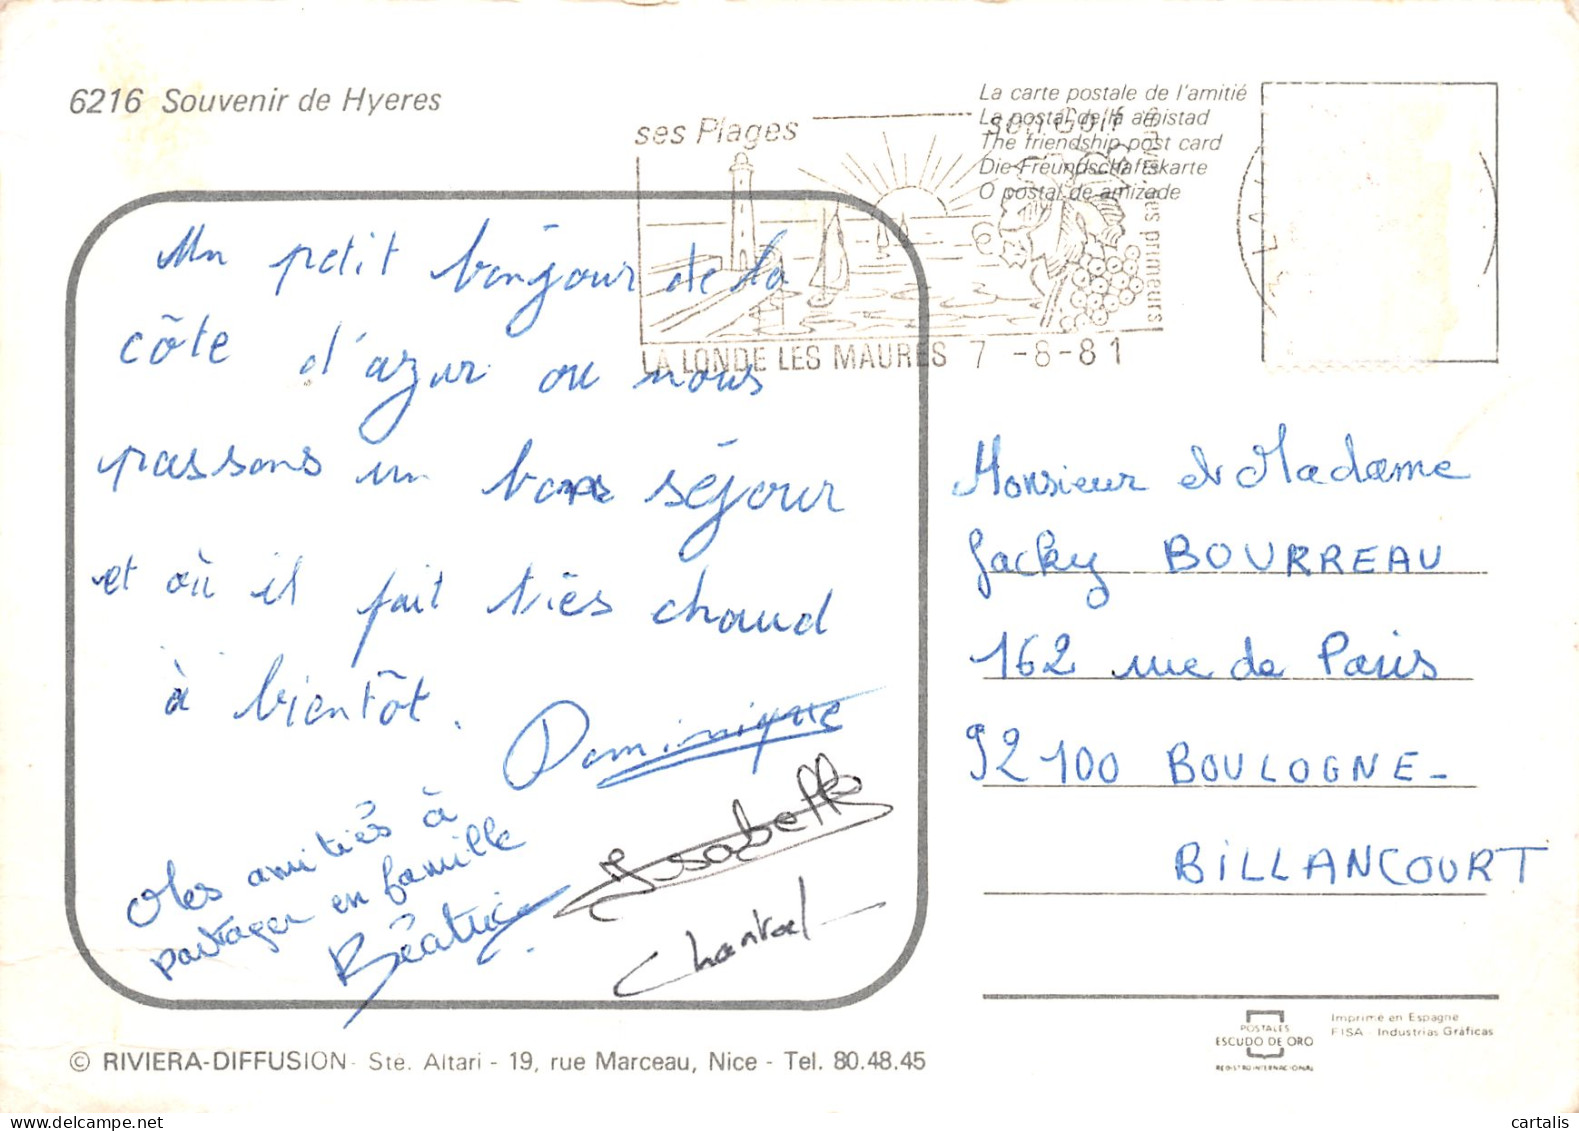 6216 Souvenir de Hyeres
La carte postale de l'amitié
La postal de la amistad
The friendship post card
Die Freundschaftskarte
O postal de amizade
ses Plages
son Golf
ses primeurs
LA LONDE LES MAURES 7 -8-81
Un petit bonjour de la
côte d'azur ou nous
passons un bon séjour
et où il fait très chaud
à bientôt.
Dominique
Mes amitiés à
partager en famille
Béatrice
Isabelle
Chantal
Monsieur et Madame
Jacky BOURREAU
162 rue de Paris
92100 BOULOGNE-
BILLANCOURT
POSTALES
ESCUDO DE ORO
REGISTRO INTERNACIONAL
Imprimé en Espagne
FISA Industrias Gráficas
© RIVIERA-DIFFUSION - Sté. Altari - 19, rue Marceau, Nice - Tel. 80.48.45
cartalis